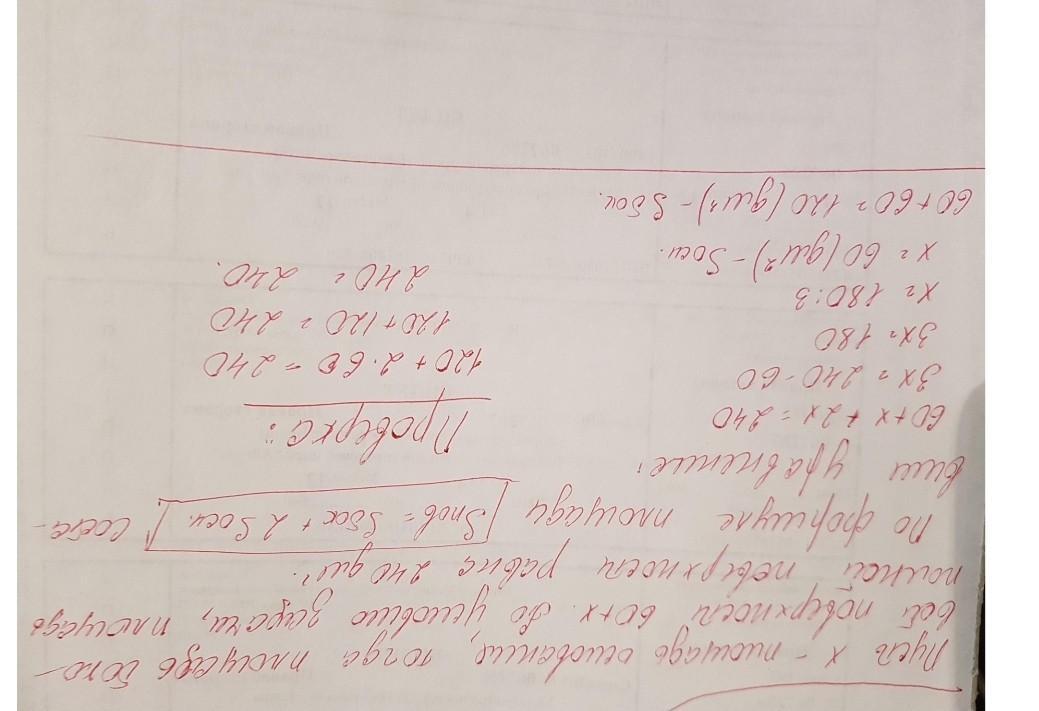 Пусть x - площадь основания, тогда площадь боко-
вой поверхности 60+x. По условию задачи, площадь
полной поверхности равна 240 дм².
По формуле площади Sпов = Sбок + 2 Sосн. соста-
вим уравнение:
60+x+2x=240
3x = 240-60
3x = 180
x = 180:3
x = 60 (дм²) - Sосн.
60+60 = 120 (дм²) - Sбок.
Проверка:
120+2·60 = 240
120+120 = 240
240 = 240.